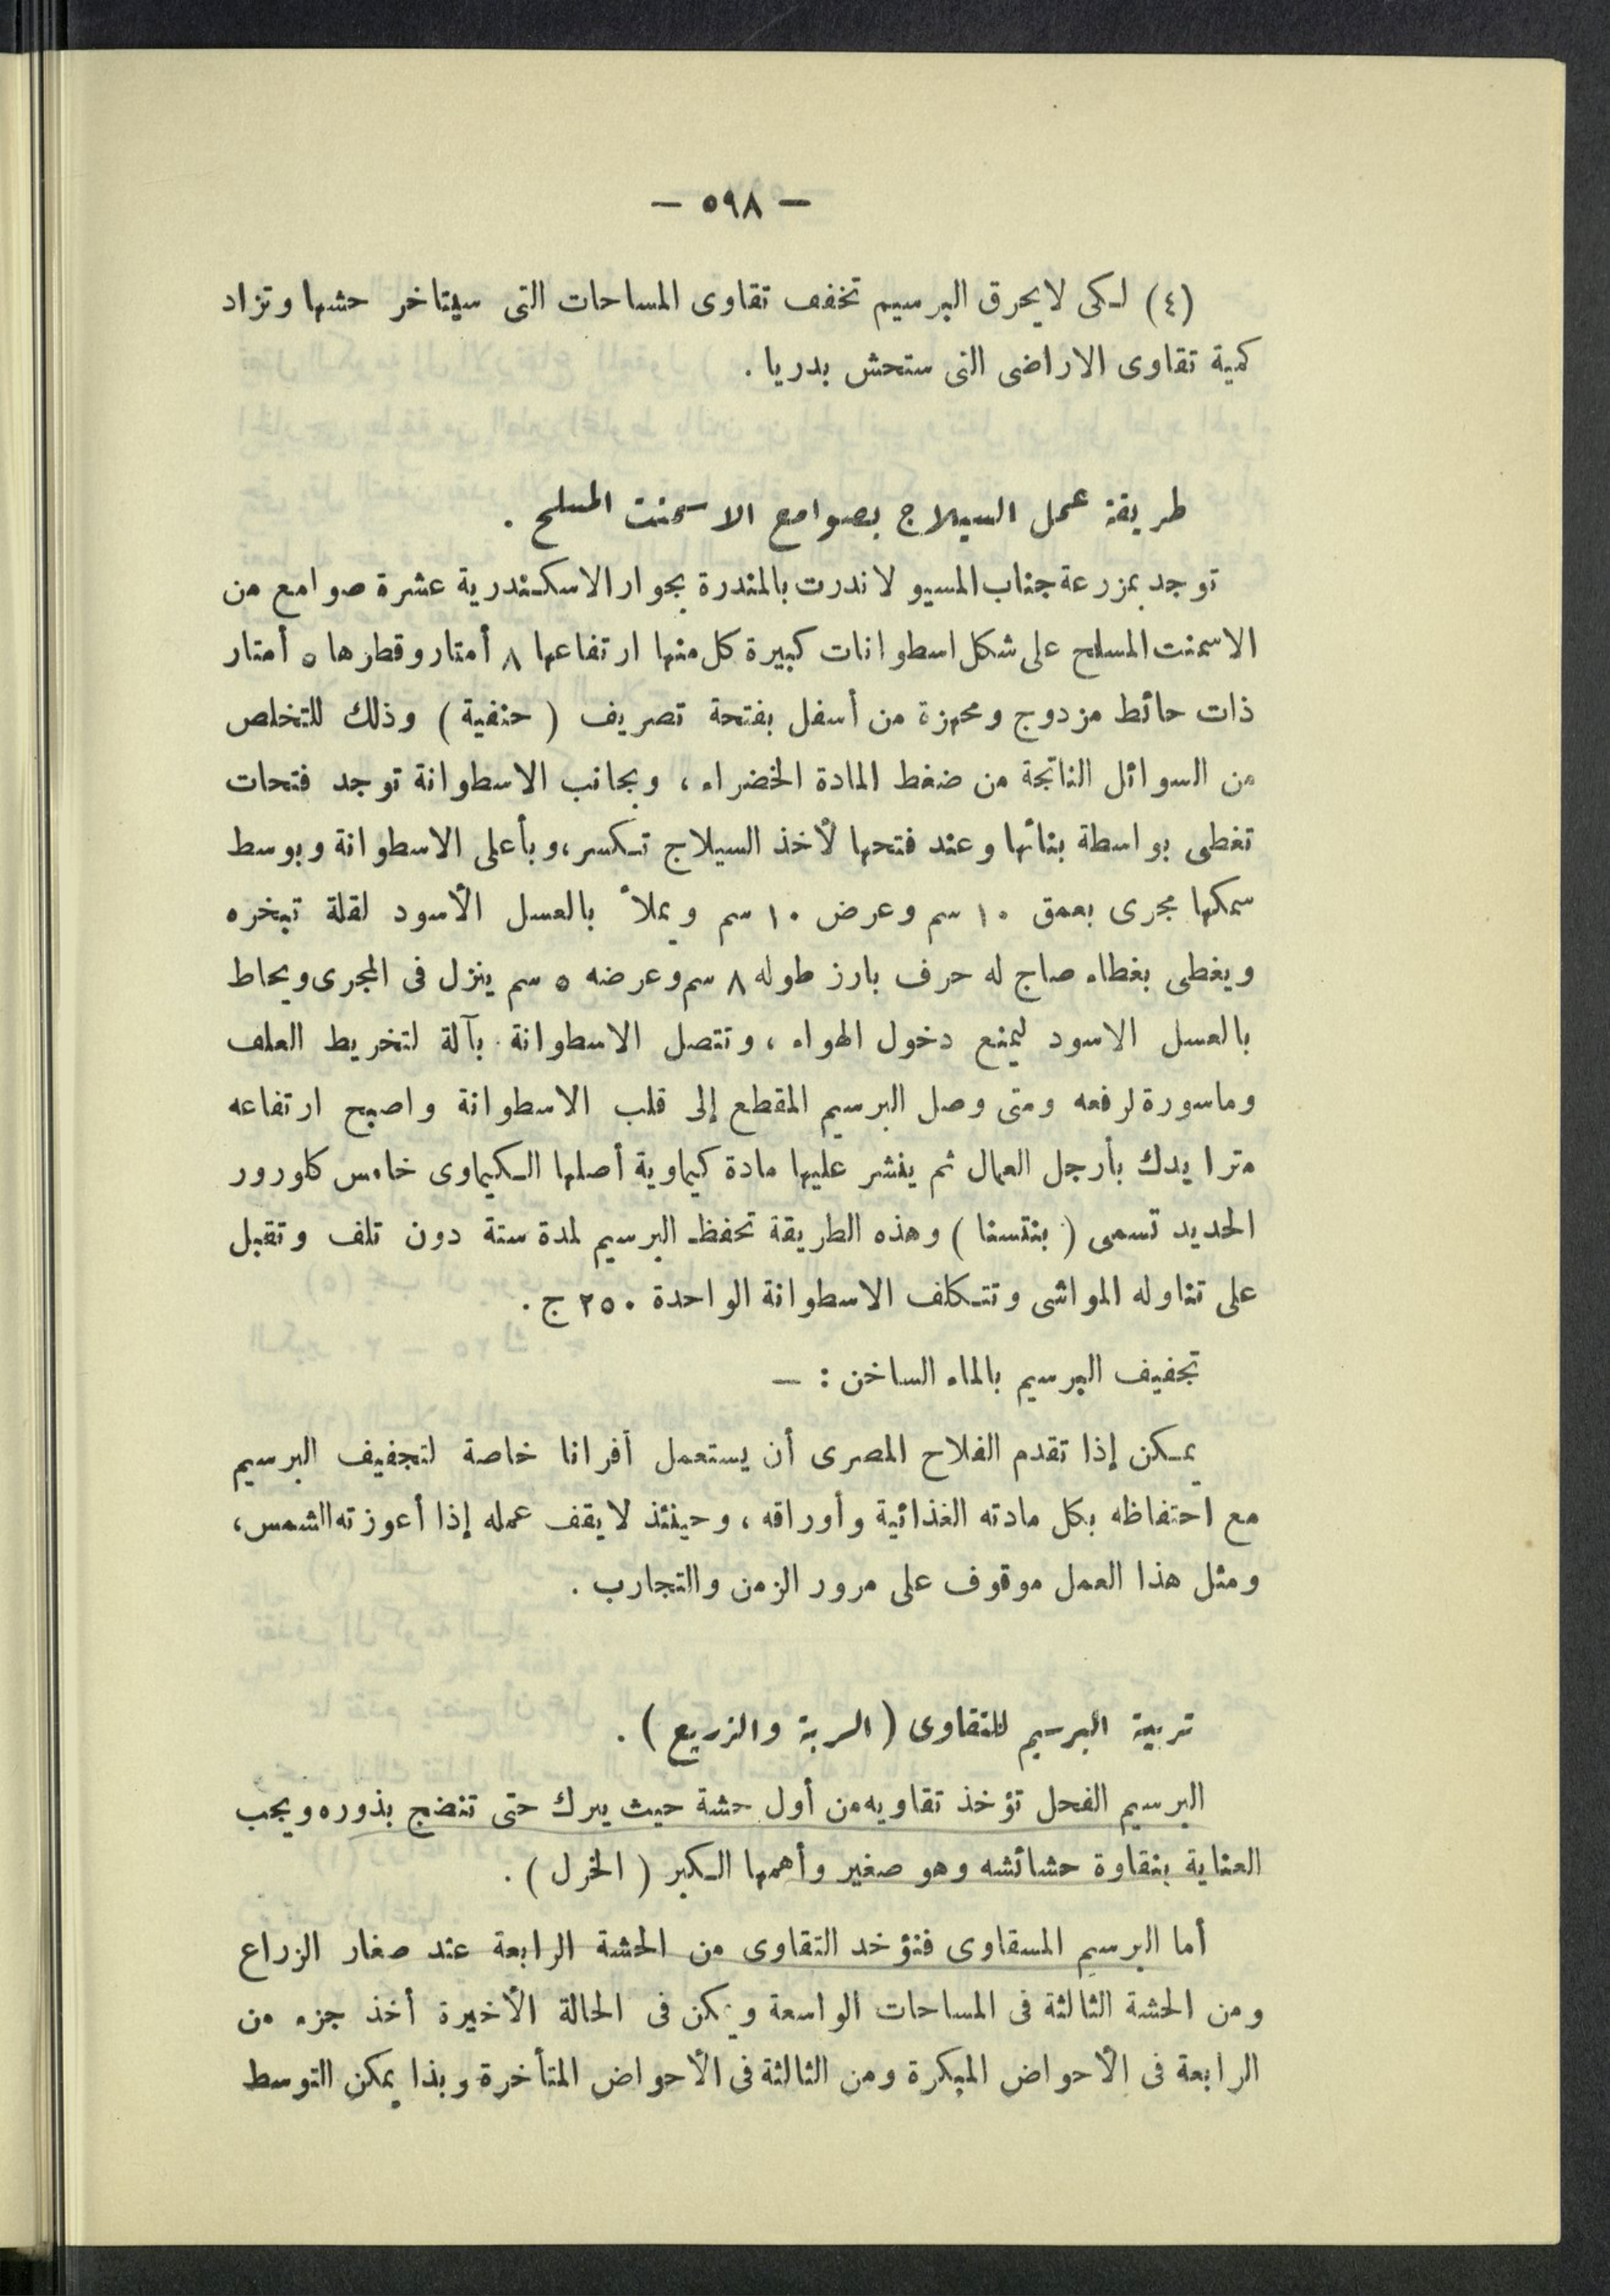 — ٥٩٨ —
(٤) لكى لا يحرق البرسيم تخفف تقاوى المساحات التى سيتاخر حشها وتزاد
كمية تقاوى الاراضى التى ستحش بدريا .
طريقة عمل السيلاج بصوامع الاسمنت المسلح .
توجد بمزرعة جناب المسيو لاندرت بالمندرة بجوار الاسكندرية عشرة صوامع من
الاسمنت المسلح على شكل اسطوانات كبيرة كل منها ارتفاعها ٨ أمتار وقطرها ٥ أمتار
ذات حائط مزدوج ومجهزة من أسفل بفتحة تصريف ( حنفية ) وذلك للتخلص
من السوائل الناتجة من ضغط المادة الخضراء ، وبجانب الاسطوانة توجد فتحات
تغطى بواسطة بنائها وعند فتحها لأخذ السيلاج تكسر ، وبأعلى الاسطوانة وبوسط
سمكها مجرى بعمق ١٠ سم وعرض ١٠ سم ويملأ بالعسل الأسود لقلة تبخره
ويغطى بغطاء صاج له حرف بارز طوله ٨ سم وعرضه ٥ سم ينزل فى المجرى ويحاط
بالعسل الاسود ليمنع دخول الهواء ، وتتصل الاسطوانة بآلة لتخريط العلف
وماسورة لرفعه ومتى وصل البرسيم المقطع إلى قلب الاسطوانة واصبح ارتفاعه
مترا يدك بأرجل العمال ثم ينشر عليها مادة كيماوية أصلها الكيماوى خامس كلورور
الحديد تسمى ( بنتسنا ) وهذه الطريقة تحفظ البرسيم لمدة سنة دون تلف وتقبل
على تناوله المواشى وتتكلف الاسطوانة الواحدة ٢٥٠ ج .
تجفيف البرسيم بالماء الساخن : —
يمكن إذا تقدم الفلاح المصرى أن يستعمل أفرانا خاصة لتجفيف البرسيم
مع احتفاظه بكل مادته الغذائية وأوراقه ، وحينئذ لا يقف عمله إذا أعوزته الشمس ،
ومثل هذا العمل موقوف على مرور الزمن والتجارب .
تربية البرسيم للتقاوى ( الربة والزريع ) .
البرسيم الفحل تؤخذ تقاويه من أول حشة حيث يبرك حتى تنضج بذوره ويجب
العناية بنقاوة حشائشه وهو صغير وأهمها الكبر ( الخرل ) .
أما البرسيم المسقاوى فتؤخد التقاوى من الحشة الرابعة عند صغار الزراع
ومن الحشة الثالثة فى المساحات الواسعة ويمكن فى الحالة الأخيرة أخذ جزء من
الرابعة فى الأحواض المبكرة ومن الثالثة فى الأحواض المتأخرة وبذا يمكن التوسط